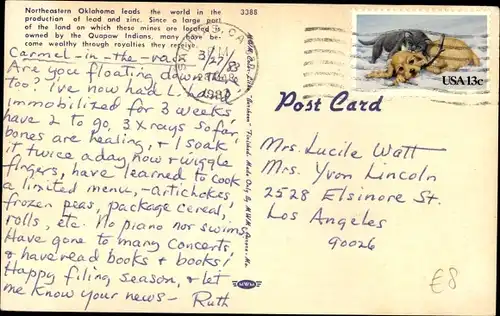 Northeastern Oklahoma leads the world in the
production of lead and zinc. Since a large part
of the land on which these mines are located is
owned by the Quapow Indians, many have be-
come wealthy through royalties they receive.
3386
Carmel-in-the-rain 3/27/83
Are you floating down there
too? I've now had L. hand
immobilized for 3 weeks,
have 2 to go, 3 x rays so far,
bones are healing, & I soak
it twice a day, now & wiggle
fingers, have learned to cook
a limited menu, - artichokes,
frozen peas, package cereal,
rolls, etc. No piano nor swims.
Have gone to many concerts,
& have read books & books!
Happy filing season, & let
me know your news - Ruth
USA 13c
Post Card
Mrs. Lucile Watt
Mrs. Yvon Lincoln
2528 Elsinore St.
Los Angeles
90026
MWM
£8